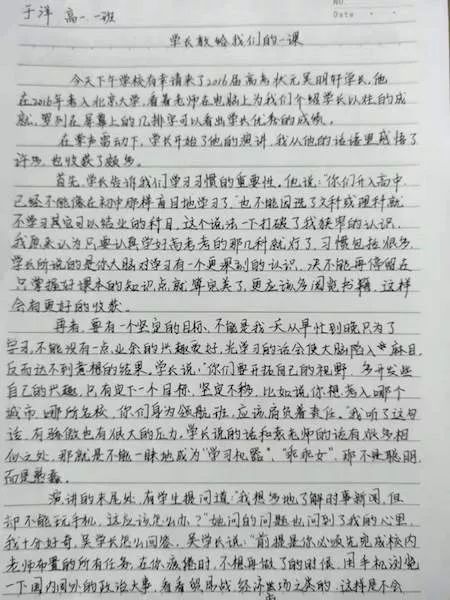 NO.
Date
于洋 高一.一班
学长教给我们的一课
今天下午学校有幸请来了2016届高考状元吴明轩学长,他
在2016年考入北京大学,看着老师在电脑上为我们介绍学长以往的成
就,罗列在屏幕上的几排字可以看出学长优秀的成绩。
在掌声雷动下,学长开始了他的演讲,我从他的话语里感悟了
许多,也收获了颇多。
首先,学长告诉我们学习习惯的重要性。他说:“你们升入高中,
已经不能像在初中那样盲目地学习了,也不能因选了文科或理科就
不学习其它可以结业的科目,这个说法一下打破了我狭窄的认识,
我原来认为只要认真学好高考考的那几科就行了,习惯包括很多,
学长所说的是你大脑对学习有一个更深刻的认识,决不能再停留在
只掌握好课本的知识点就算完美了,更应该多阅览书籍,这样
会有更好的收获。
再者,要有一个坚定的目标,不能是我一天从早忙到晚只为了
学习,不能没有一点业余的兴趣爱好,光学习的话会使大脑陷入麻目,
反而达不到意想的结果。学长说:“你们要开拓自己的视野,多开发些
自己的兴趣,只有定下一个目标,坚定不移,比如说你想考入哪个
城市,哪所名校,你们身为领航班,应该肩负着责任。”我听了这句
话,有骄傲也有很大的压力,学长说的话和袁老师的话有很多相
似之处,那就是不能一昧地成为“学习机器”,“乖乖女”,那不是聪明,
而是愚蠢。
演讲的末尾处,有学生提问道:“我想多地了解时事新闻,但
却不能玩手机,这应该怎么办?”她问的问题也问到了我的心里,
我十分好奇,吴学长怎么回答,吴学长说:“前提是你必须先完成校内
老师布置的所有任务,在你疲倦时,不想再做了的时候,用手机浏览
一下国内国外的政治大事,看看贸易战,经济市场之类的,这样是不会